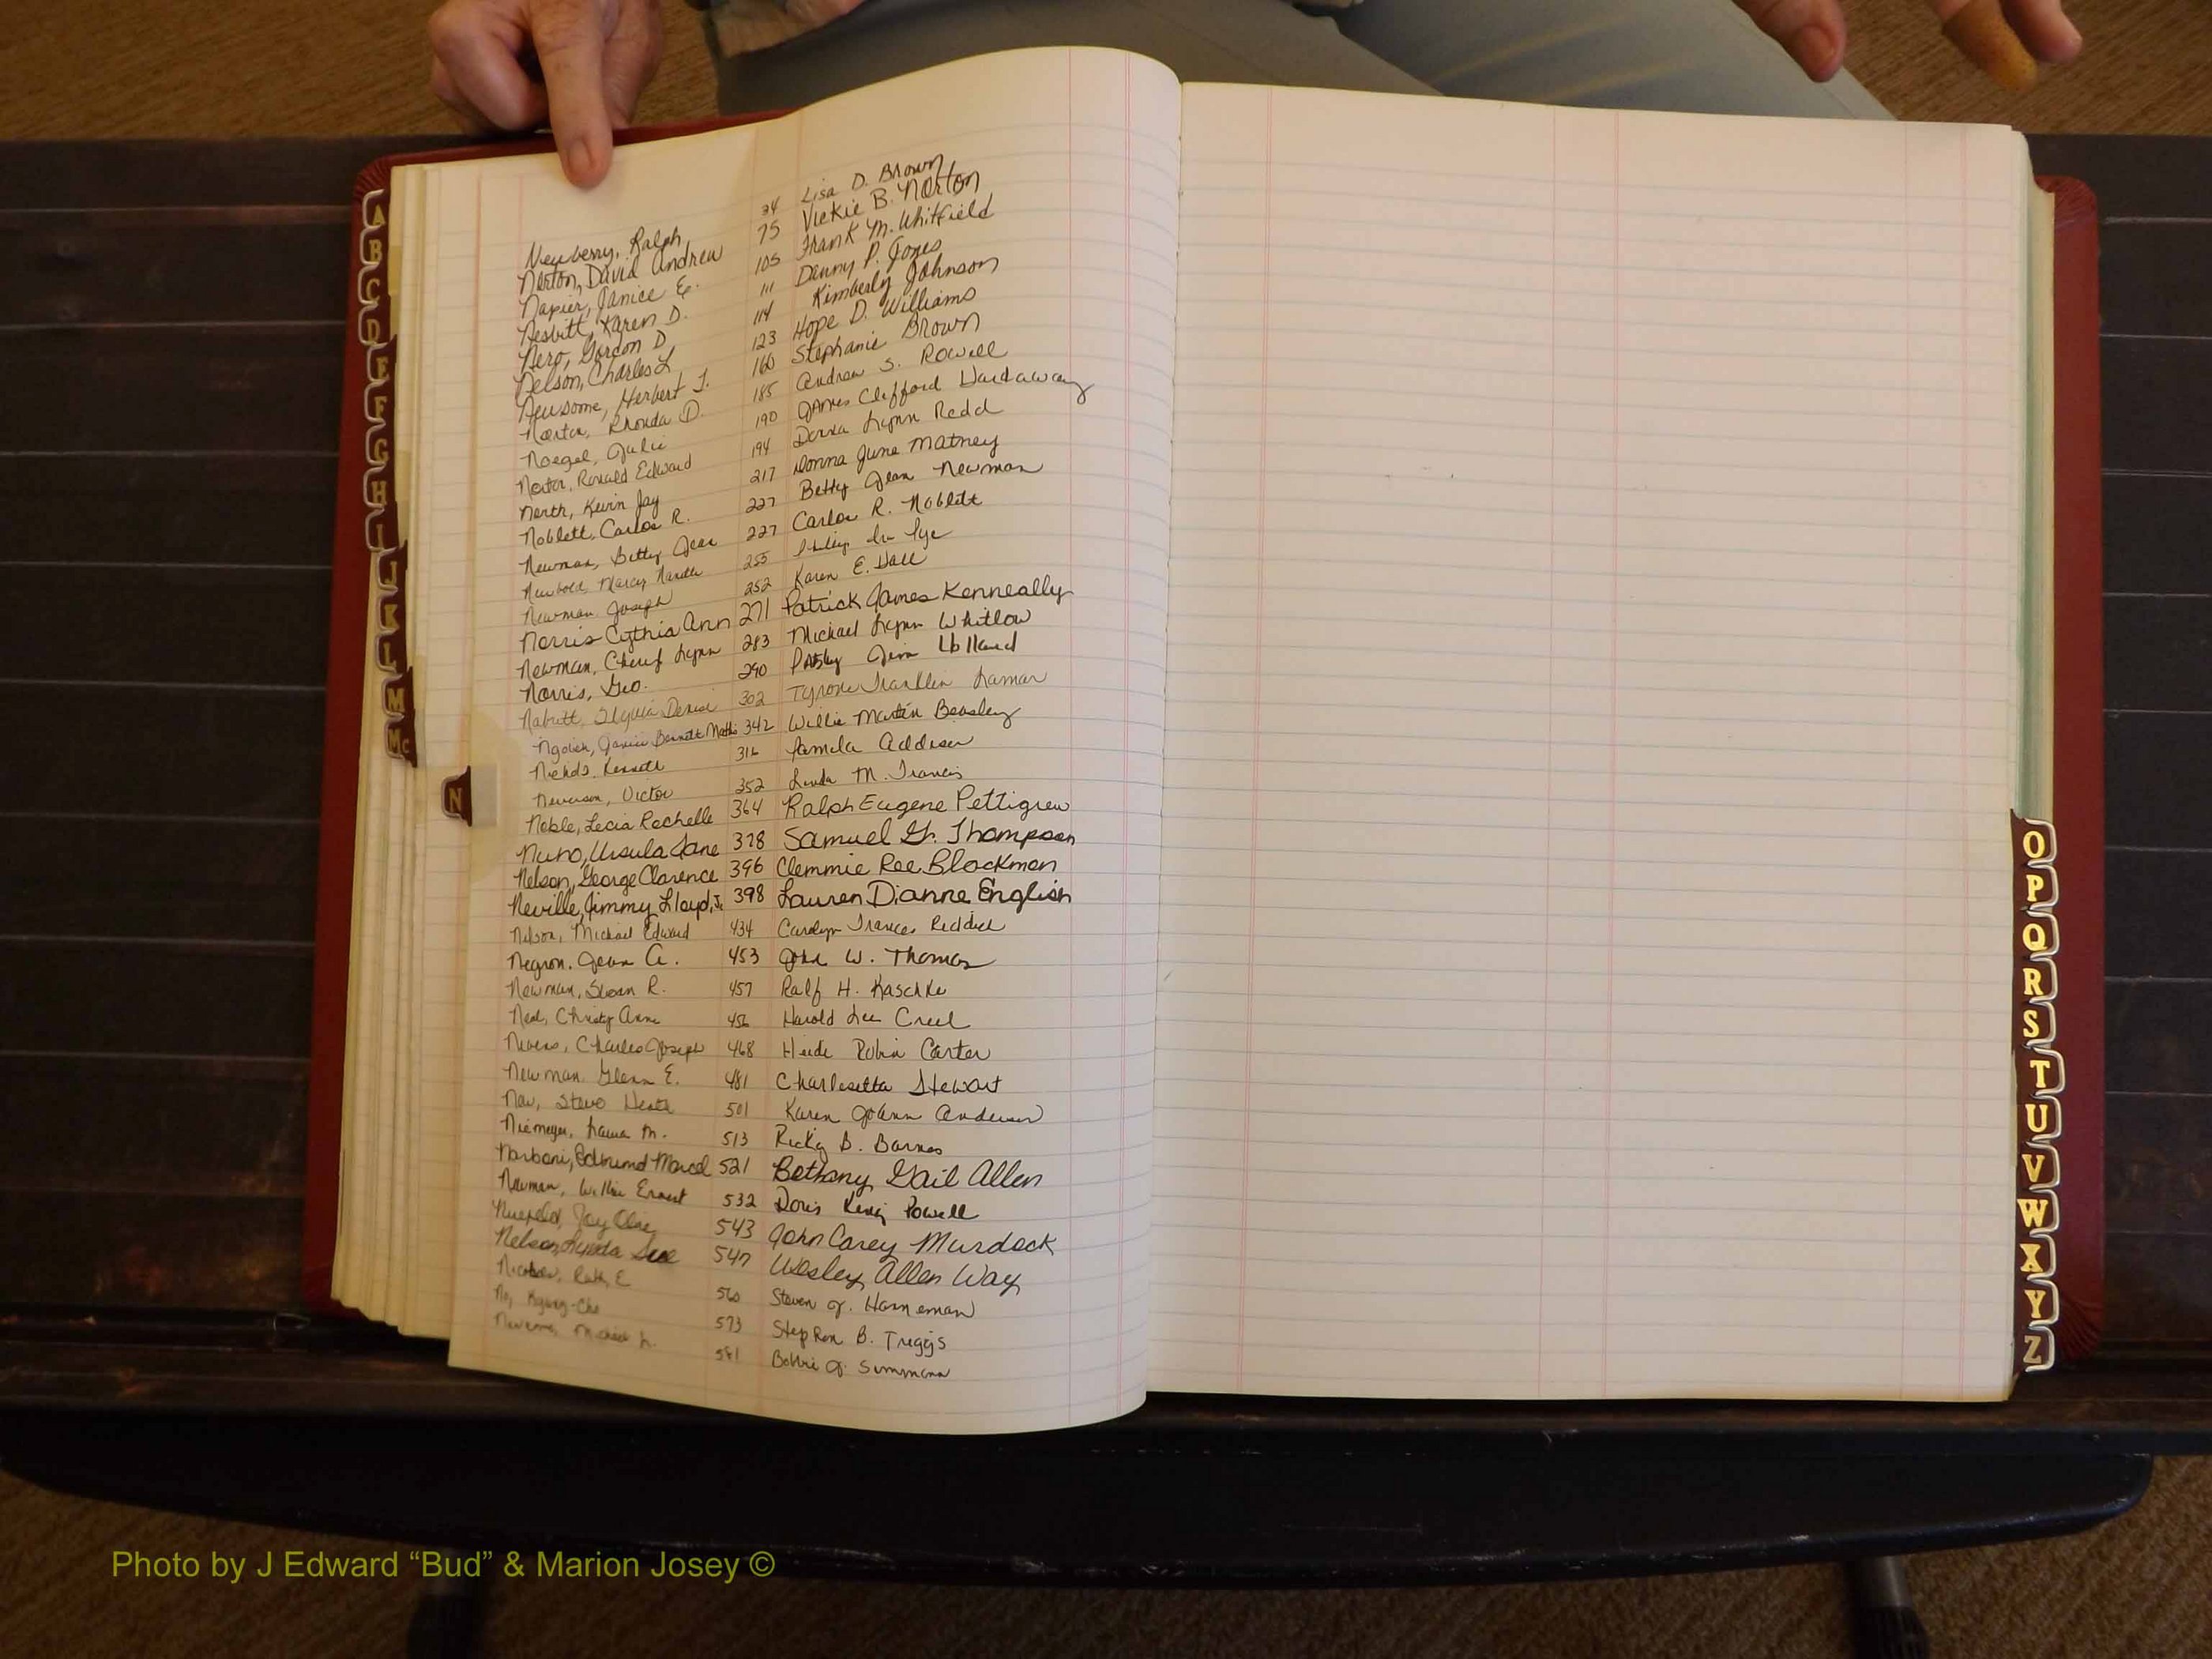 Newberry, Ralph 34 Lisa D. Brown
Norton, David Andrew 75 Vickie B. Norton
Napier, Janice E. 105 Frank M. Whitfield
Nesbitt, Karen D. 111 Danny P. Jones
Nero, Gordon D. 114 Kimberly Johnson
Nelson, Charles L. 123 Hope D. Williams
Newsome, Herbert J. 160 Stephanie Brown
Norton, Rhonda D. 185 Andrew S. Rowell
Noegel, Julie 190 James Clifford Hardaway
Norton, Ronald Edward 194 Lynn Redd
North, Kevin Jay 217 Donna June Matney
Noblett, Carlos R. 227 Betty Jean Newman
Newman, Betty Jean 227 Carlos R. Noblett
Newbold, Marcy 255
Newman, Joseph 252 Karen E. Hall
Norris Cythia Ann 271 Patrick James Kenneally
Newman, Cheryl Lynn 283 Michael Lynn Whitlow
Norris, Geo. 290 Holland
302 Tyrone Franklin Lamar
342 Willie Martin Beasley
Kenneth 316 Pamela Addison
Victor 352 Linda M. Francis
Noble, Lecia Rochelle 364 Ralph Eugene Pettigrew
Nuno, Ursula Jane 378 Samuel G. Thompson
Nelson, George Clarence 396 Clemmie Ree Blackmon
Neville, Jimmy Lloyd, Jr. 398 Lauren Dianne English
Nelson, Michael Edward 434 Carolyn Frances
Negron. Jean A. 453 John W. Thomas
Newman, Sloan R. 457 Ralf H. Kaschke
Neal, Christy Anne 456 Harold Lee Creel
Nivens, Charles Joseph 468 Robin Carter
Newman. Glenn E. 481 Charlesetta Stewart
501 Karen JoAnn Anderson
Niemeyer, Laura M. 513 Ricky B. Barnes
Marcel 521 Bethany Gail Allen
Newman, Willie Ernest 532 Doris King Powell
543 John Carey Murdock
Nelson, Lynda Sue 547 Wesley Allen Way
Ruth E 560 Steven J. Hanneman
573 Stephen B. Treggs
581 Bobbie J. Simmons
A
B
C
D
E
F
G
H
I
J
K
L
M
Mc
N
O
P
Q
R
S
T
U
V
W
X
Y
Z
Photo by J Edward “Bud” & Marion Josey ©